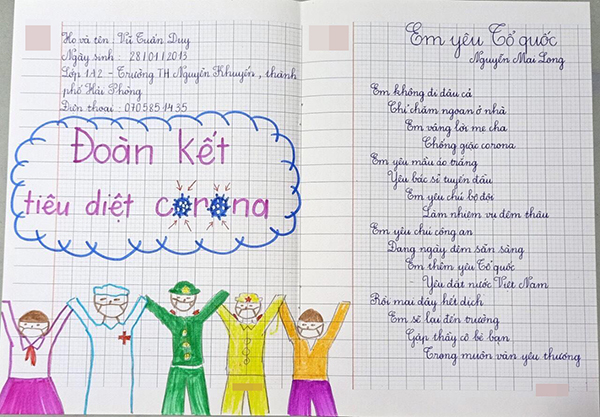 Họ và tên : Vũ Tuấn Duy
Ngày sinh : 28/01/2013
Lớp 1A2 - Trường TH Nguyễn Khuyến, thành
phố Hải Phòng
Điện thoại : 0705851435
Đoàn kết
tiêu diệt corona
Em yêu Tổ quốc
Nguyễn Mai Long
Em không đi đâu cả
Chỉ chăm ngoan ở nhà
Em vâng lời mẹ cha
Chống giặc corona
Em yêu mầu áo trắng
Yêu bác sĩ tuyến đầu
Em yêu chú bộ đội
Làm nhiệm vụ đêm thâu
Em yêu chú công an
Đang ngày đêm sẵn sàng
Em thêm yêu Tổ quốc
Yêu đất nước Việt Nam
Rồi mai đây hết dịch
Em sẽ lại đến trường
Gặp thầy cô bè bạn
Trong muôn vàn yêu thương